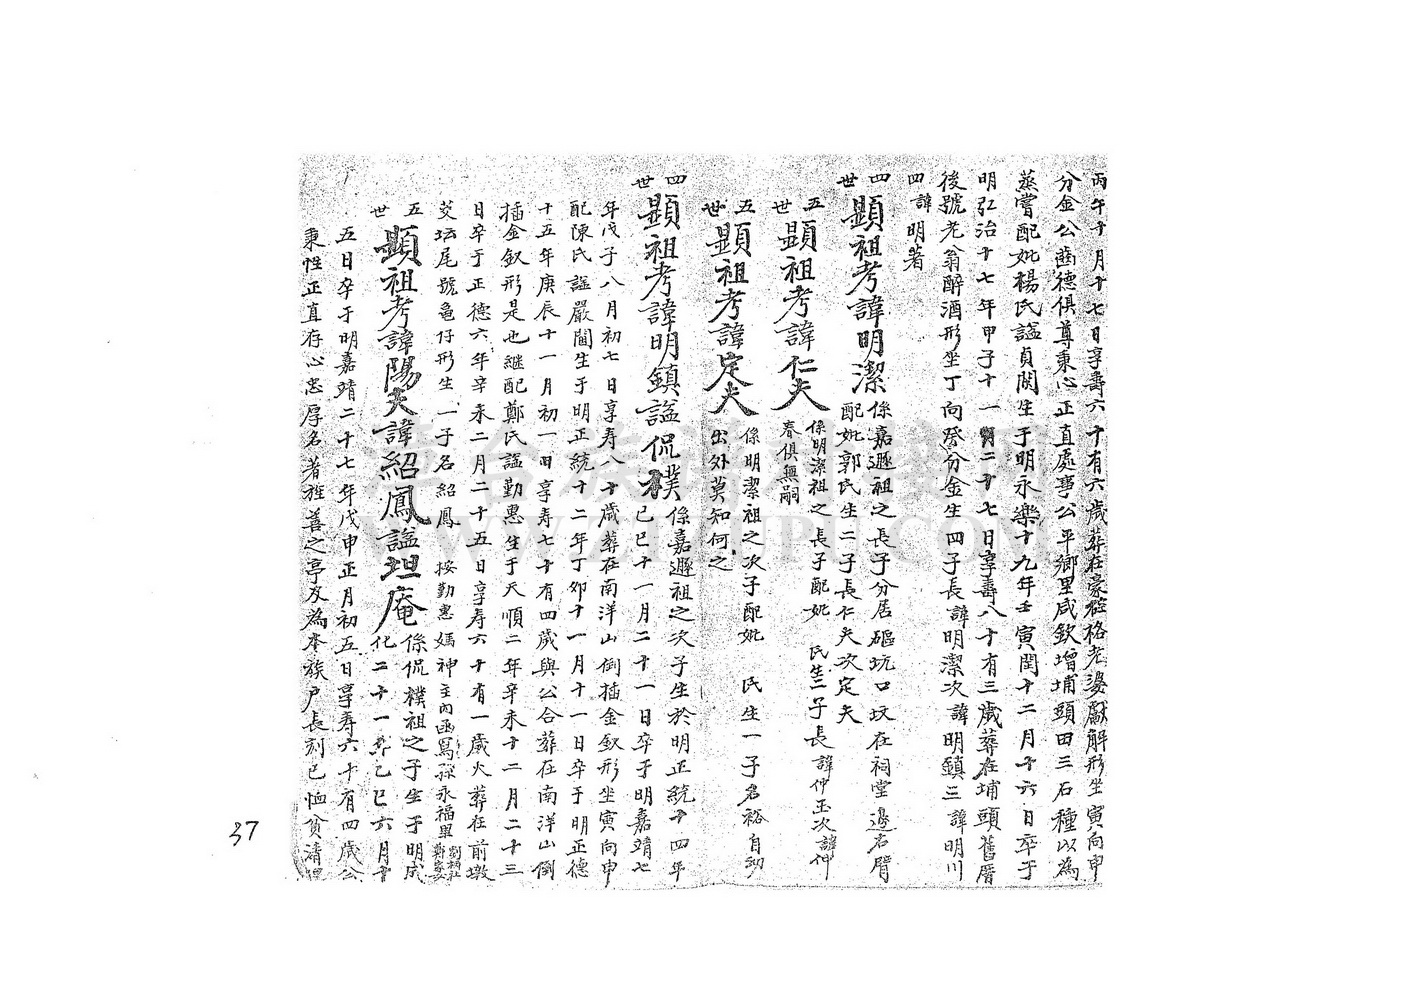 丙午十月十七日享壽六十有六歲葬在豪崆格老婆厭解形坐寅向申
分金公齒德俱尊秉心正直處事公平鄉里咸欽增埔頭田三石種以為
蒸嘗配妣楊氏謚貞閑生于明永樂十九年壬寅閏十二月十六日卒于
明弘治十七年甲子十一月二十七日享壽八十有三歲葬在埔頭舊厝
後號老翁醉酒形坐丁向癸分金生四子長諱明潔次諱明鎮三諱明川
四諱明著
四世
顯祖考諱明潔
係嘉遯祖之長子分居礪坑口坟在祠堂邊右臂
配妣郭氏生二子長仁夫次定夫
五世
顯祖考諱仁夫
係明潔祖之長子配妣 氏生二子長諱仲玉次諱仲
春俱無嗣
五世
顯祖考諱定夫
係明潔祖之次子配妣 氏生一子名裕自幼
出外莫知何之
四世
顯祖考諱明鎮謚侃樸
係嘉遯祖之次子生於明正統十四年
己巳十一月二十一日卒于明嘉靖七
年戊子八月初七日享寿八十歲葬在南洋山倒插金釵形坐寅向申
配陳氏謚嚴閫生于明正統十二年丁卯十一月十一日卒于明正德
十五年庚辰十一月初一日享寿七十有四歲與公合葬在南洋山倒
插金釵形是也継配鄭氏謚勤惠生于天順二年辛未十二月二十三
日卒于正德六年辛未二月二十五日享寿六十有一歲火葬在前墩
茭坛尾號龜仔形生一子名紹鳳 按勤惠媽神主內函寫孫永福里
五世
顯祖考諱陽夫諱紹鳳謚坦庵
係侃樸祖之子生于明成
化二十一葬乙巳六月十
五日卒于明嘉靖二十七年戊申正月初五日享寿六十有四歲公
秉性正直存心忠厚名著旌善之亭及為本族户長刻己恤貧清理
37
漳台族谱对接网
WWW.ZTZUPU.COM